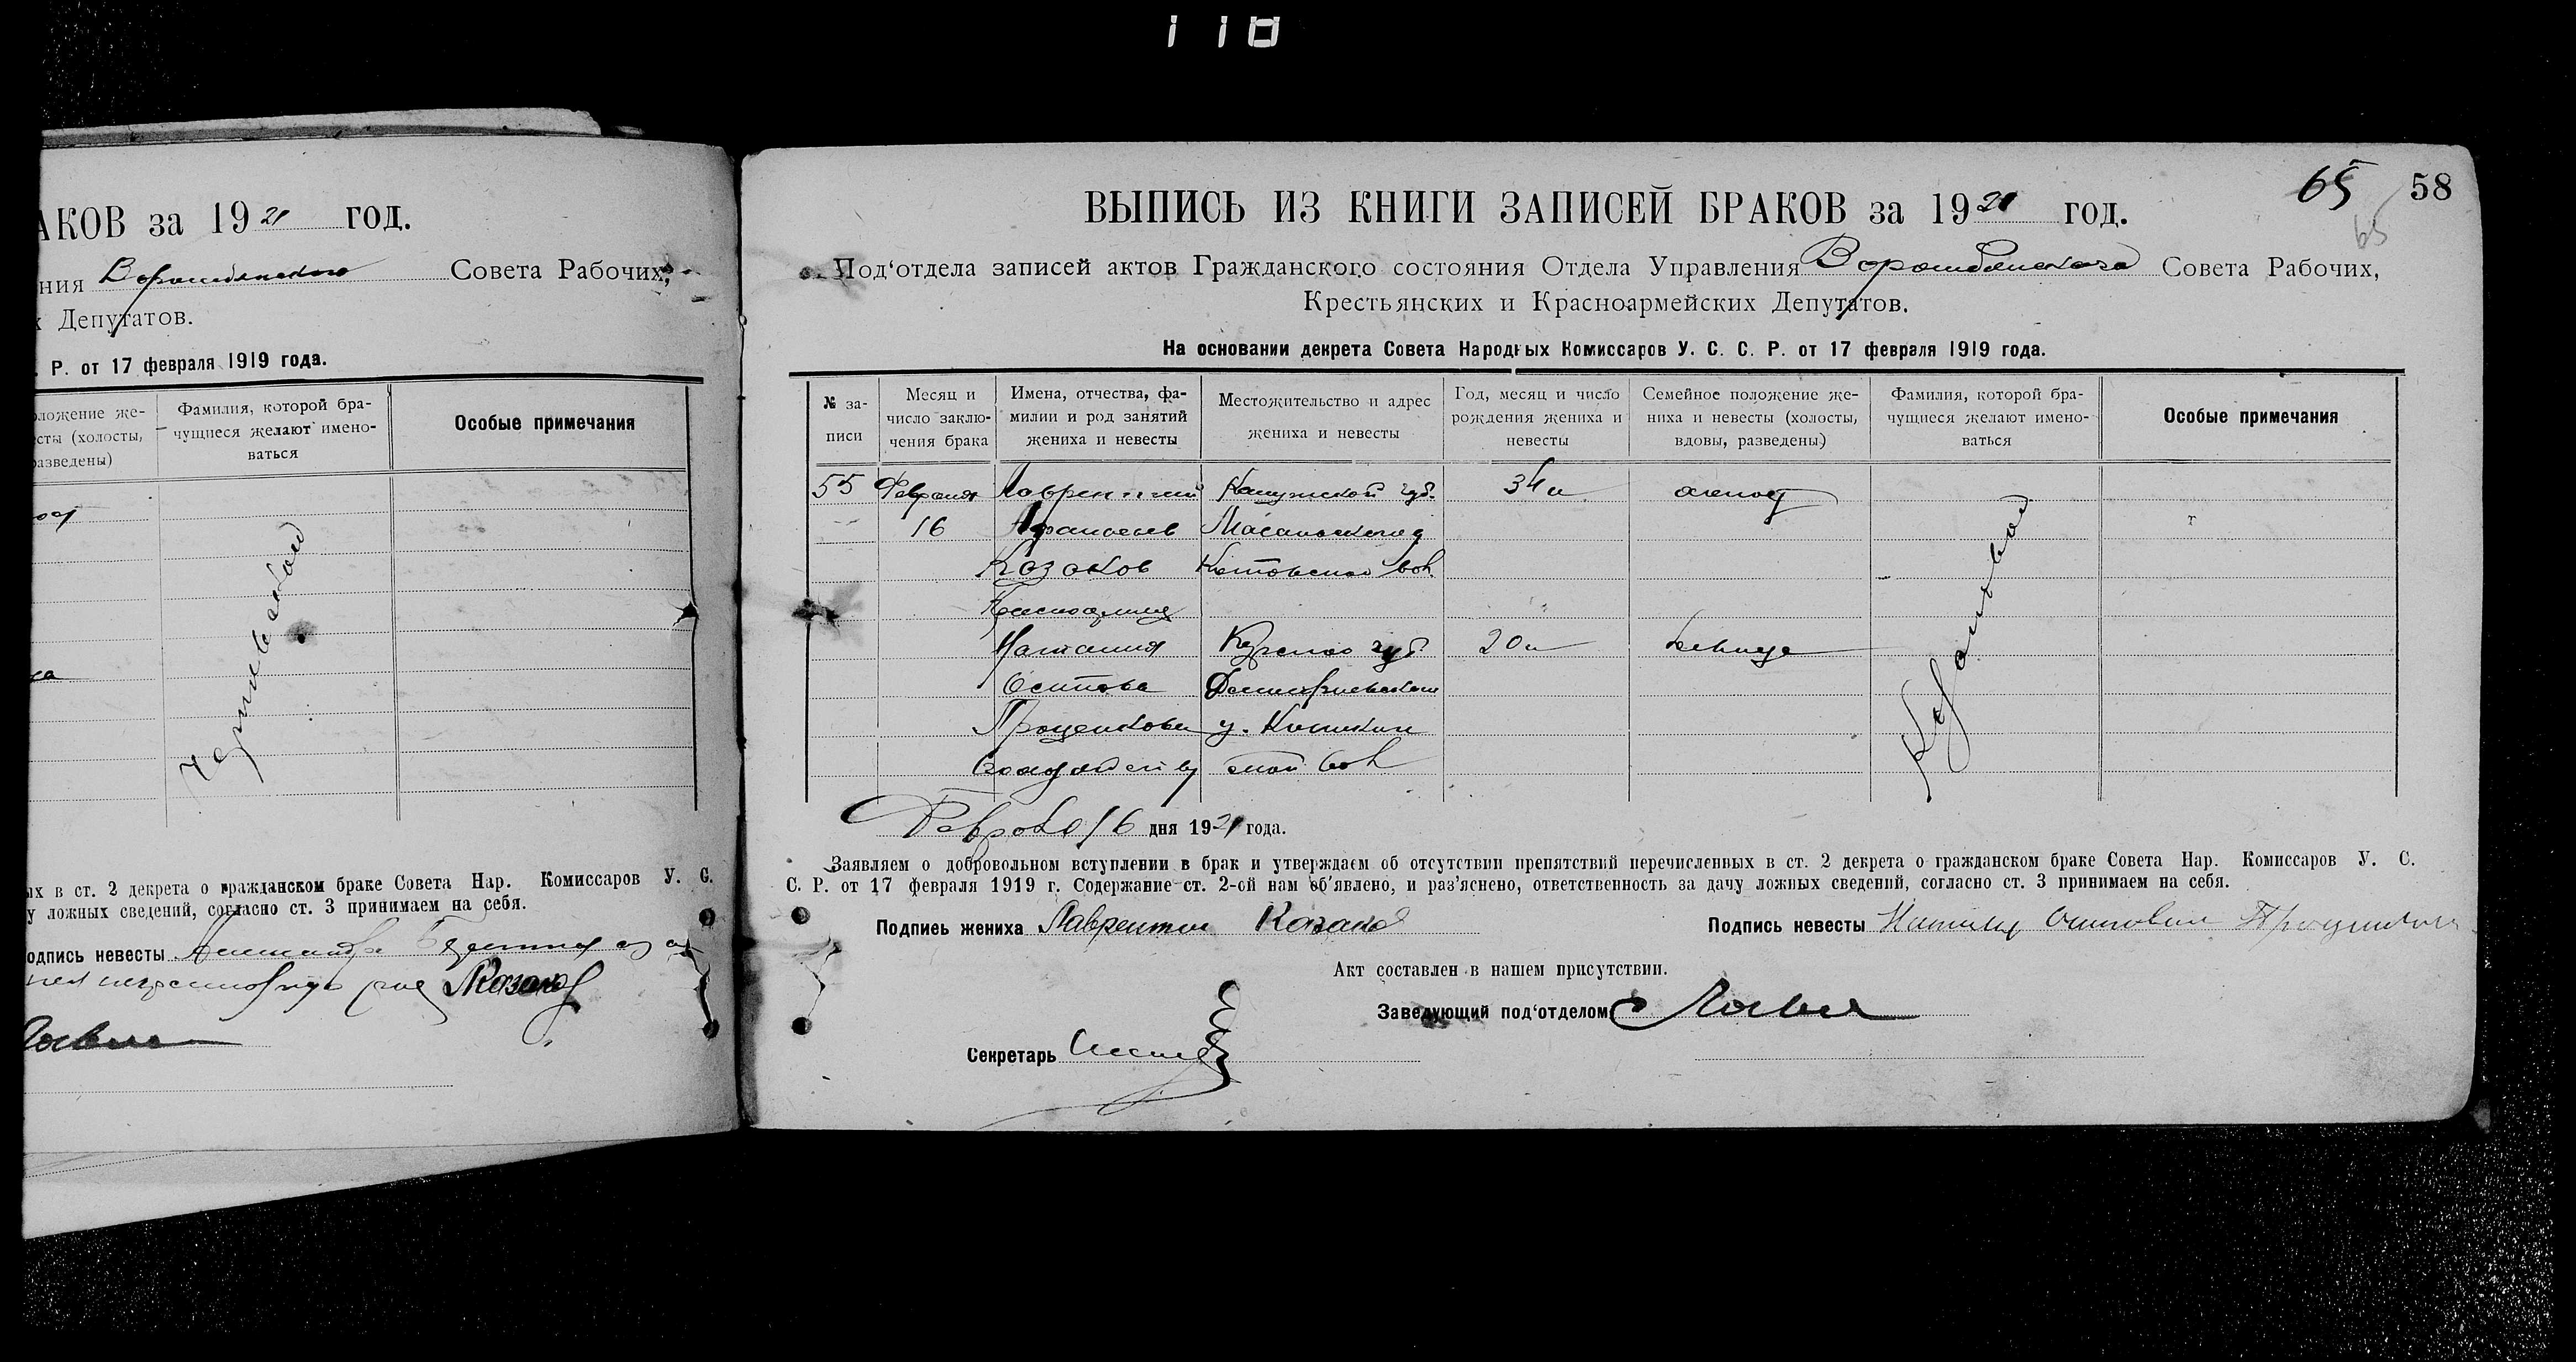 118
АКОВ за 1921 год.
ния Ворожбянского Совета Рабочих,
х Депутатов.
. Р. от 17 февраля 1919 года.
оложение же-
есты (холосты,
разведены)
Фамилия, которой бра-
чущиеся желают имено-
ваться
Особые примечания
ых в ст. 2 декрета о гражданском браке Совета Нар. Комиссаров У. С.
у ложных сведений, согласно ст. 3 принимаем на себя.
одпись невесты Александра
Казаков
65 58
65
ВЫПИСЬ ИЗ КНИГИ ЗАПИСЕЙ БРАКОВ за 1921 год.
Под'отдела записей актов Гражданского состояния Отдела Управления Ворожбянского Совета Рабочих,
Крестьянских и Красноармейских Депутатов.
На основании декрета Совета Народных Комиссаров У. С. С. Р. от 17 февраля 1919 года.
№ за-
писи
Месяц и
число заклю-
чения брака
Имена, отчества, фа-
милии и род занятий
жениха и невесты
Местожительство и адрес
жениха и невесты
Год, месяц и число
рождения жениха и
невесты
Семейное положение же-
ниха и невесты (холосты,
вдовы, разведены)
Фамилия, которой бра-
чущиеся желают имено-
ваться
Особые примечания
55 Февраля Лаврентий Калужской губ. 34 л холост
16 Афанасьев Масальского у
Казаков вол.
Наталия Курской губ 20 л девица
Осипова Дмитриевского
Проценкова у.
ской вол
Казаковой
Февраля 16 дня 1921 года.
Заявляем о добровольном вступлении в брак и утверждаем об отсутствии препятствий перечисленных в ст. 2 декрета о гражданском браке Совета Нар. Комиссаров У. С.
С. Р. от 17 февраля 1919 г. Содержание ст. 2-ой нам об'явлено, и раз'яснено, ответственность за дачу ложных сведений, согласно ст. 3 принимаем на себя.
Подпись жениха Лаврентий Казаков
Подпись невесты Осиповна
Акт составлен в нашем присутствии.
Заведующий под'отделом
Секретарь